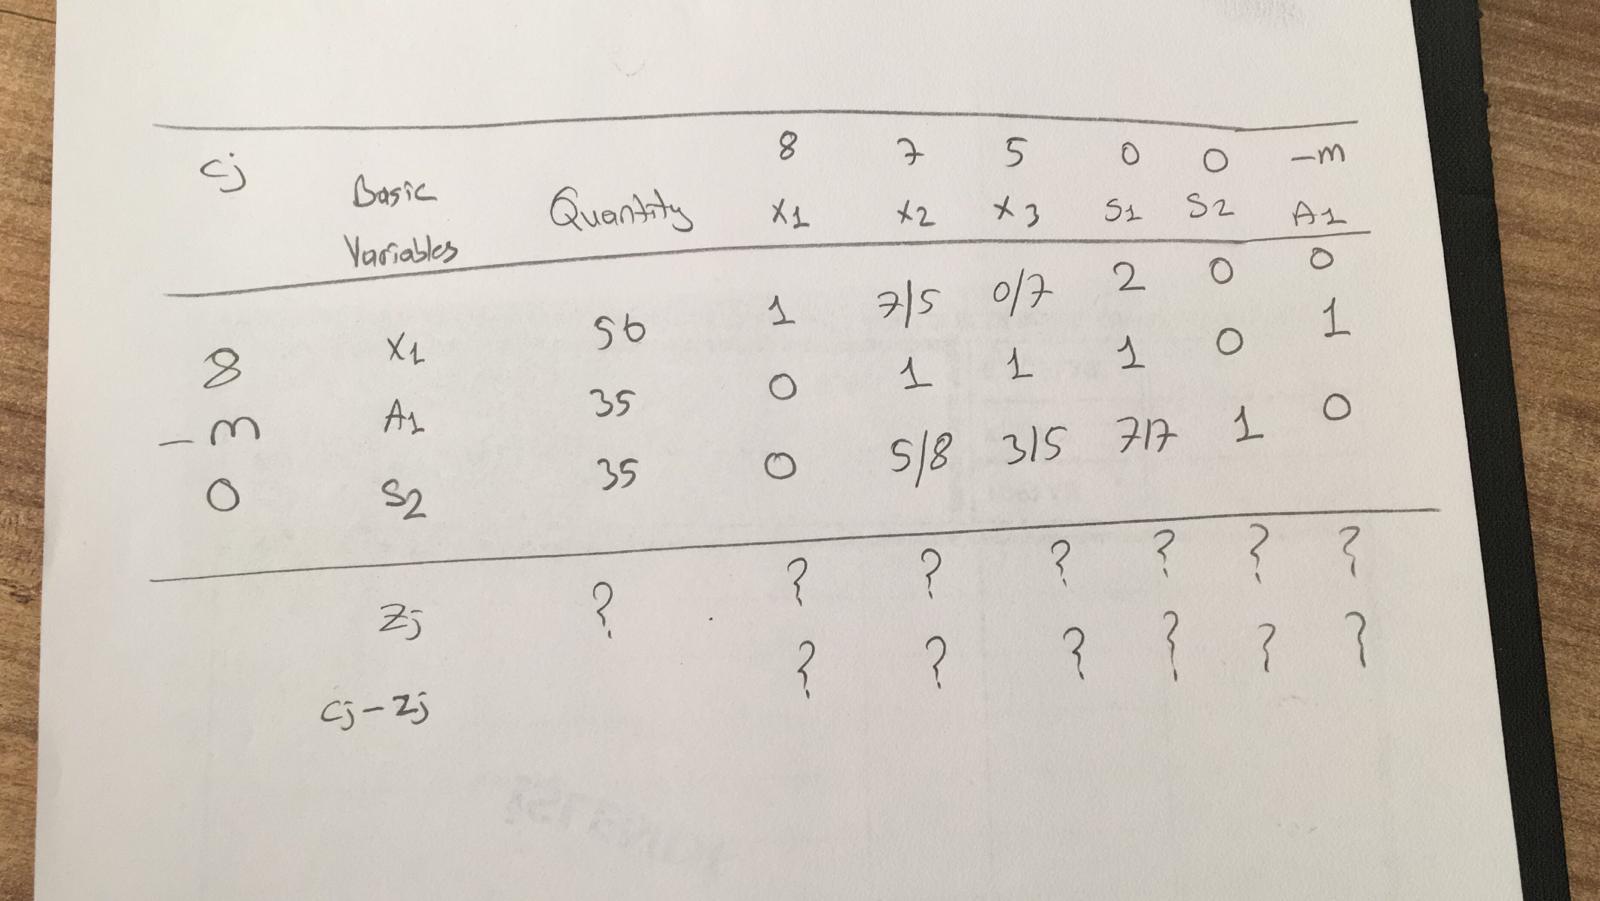 cj 8 7 5 0 0 -m
Basic Variables Quantity X1 X2 X3 S1 S2 A1
8 X1 56 1 7/5 0/7 2 0 0
-m A1 35 0 1 1 1 0 1
0 S2 35 0 5/8 3/5 7/7 1 0
Zj ? ? ? ? ? ? ?
cj-zj ? ? ? ? ? ?